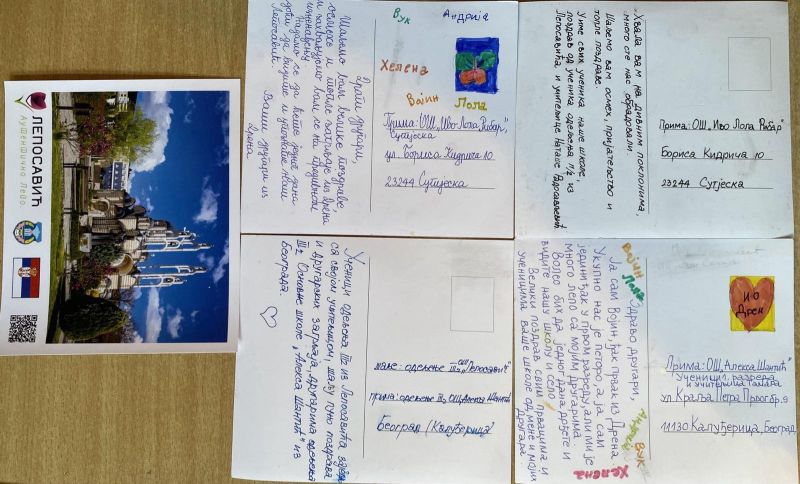 ЛЕПОСАВИЋ
Аутентично Лепо
Драги другари,
Шаљемо вам велике поздраве,
осмехе и топле загрљаје из Дрена
и захваљујемо вам се на предивном
изненађењу.
Надамо се да ћете једног дана
доћи да видите и упознате наш
Лепосавић.
Ваши другари из
Дрена
Вук
Андрија
Хелена
Војин
Лола
Прима: ОШ „Иво Лола Рибар",
Сутјеска
ул Бориса Кидрича 10
23244 Сутјеска
Хвала вам на дивним поклонима,
много сте нас обрадовали.
Шаљемо вам осмех, пријатељство и
топле поздраве.
У име свих ученика наше школе,
поздрав од ученика одељења II/2 из
Лепосавића и учитељице Наташе Радосављевић
Прима: ОШ „Иво Лола Рибар"
Бориса Кидрича 10
23244 Сутјеска
Ученици одељења III2 из Лепосавића
са својом учитељицом, шаљу пуно поздрава
и другарских загрљаја другарима одељења
III2 Основне школе „Алекса Шантић" из
Београда.
шаље: одељење III2 ОШ „Лепосавић"
прима: одељење III2 ОШ „Алекса Шантић"
Београд (Калуђерица)
Војин
Лола
Здраво другари,
Ја сам Војин ђак првак из Дрена.
Укупно нас је петоро, а ја сам
једини ђак у првом разреду, али ми је
много лепо са мојим другарима.
Волео бих да једног дана дођете и
видите нашу школу и село.
Велики поздрав свим првацима и
ученицима ваше школе од мене и мојих
другара
Андрија
Вук
Хелена
ИО
Дрен
Прима: ОШ „Алекса Шантић"
Ученици разреда
и учитељица Тамара
ул Краља Петра Првог бр. 9
11130 Калуђерица, Београд